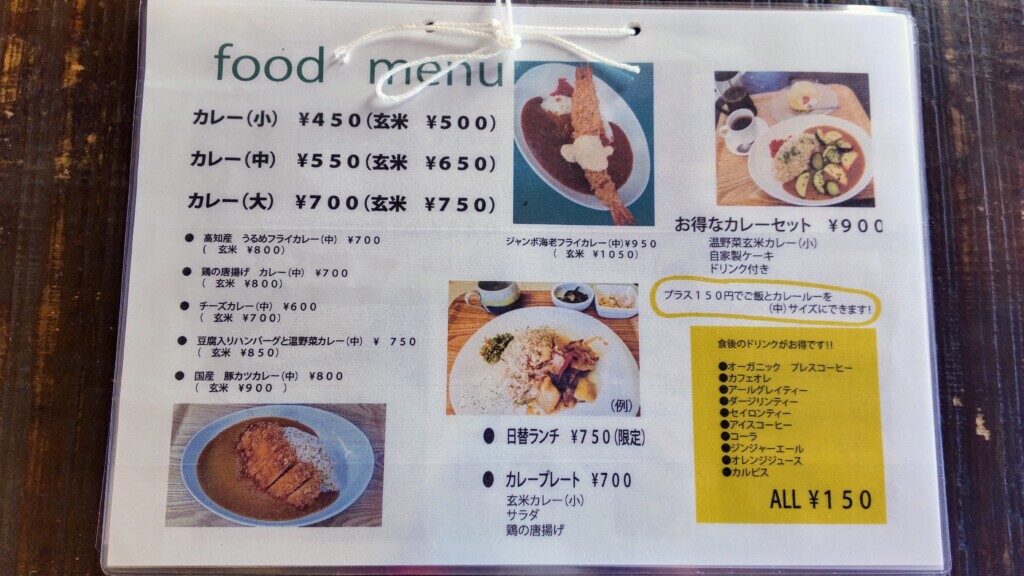 food menu
カレー(小) ¥450(玄米 ¥500)
カレー(中) ¥550(玄米 ¥650)
カレー(大) ¥700(玄米 ¥750)
● 高知産 うるめフライカレー(中) ¥700
( 玄米 ¥800)
● 鶏の唐揚げ カレー(中) ¥700
( 玄米 ¥800)
● チーズカレー(中) ¥600
( 玄米 ¥700)
● 豆腐入りハンバーグと温野菜カレー(中) ¥ 750
( 玄米 ¥850)
● 国産 豚カツカレー(中) ¥800
( 玄米 ¥900 )
ジャンボ海老フライカレー(中)¥950
( 玄米 ¥1050)
(例)
● 日替ランチ ¥750(限定)
● カレープレート ¥700
玄米カレー(小)
サラダ
鶏の唐揚げ
お得なカレーセット ¥900
温野菜玄米カレー(小)
自家製ケーキ
ドリンク付き
プラス150円でご飯とカレールーを
(中)サイズにできます!
食後のドリンクがお得です!!
●オーガニック プレスコーヒー
●カフェオレ
●アールグレイティー
●ダージリンティー
●セイロンティー
●アイスコーヒー
●コーラ
●ジンジャーエール
●オレンジジュース
●カルピス
ALL ¥150